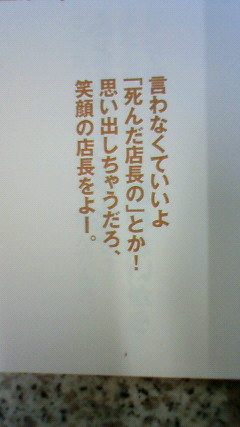 言わなくていいよ
「死んだ店長の」とか！
思い出しちゃうだろ、
笑顔の店長をよー。